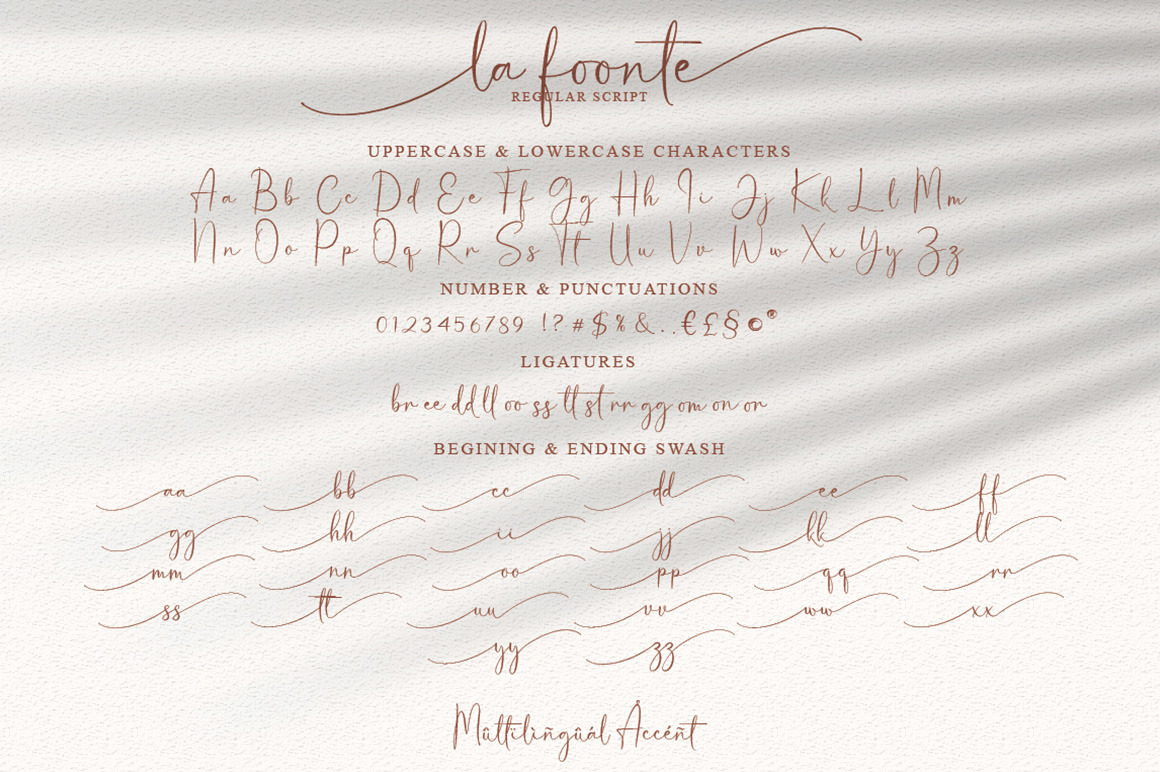 la foonte
REGULAR SCRIPT
UPPERCASE & LOWERCASE CHARACTERS
Aa Bb Cc Dd Ee Ff Gg Hh Ii Jj Kk Ll Mm
Nn Oo Pp Qq Rr Ss Tt Uu Vv Ww Xx Yy Zz
NUMBER & PUNCTUATIONS
0123456789 !?#$%&..€£§©®
LIGATURES
br ee dd ll oo ss tt st rr gg om on or
BEGINING & ENDING SWASH
aa bb cc dd ee ff
gg hh ii jj kk ll
mm nn oo pp qq rr
ss tt uu vv ww xx
yy zz
Mûltïlìñgûál Åccéñt